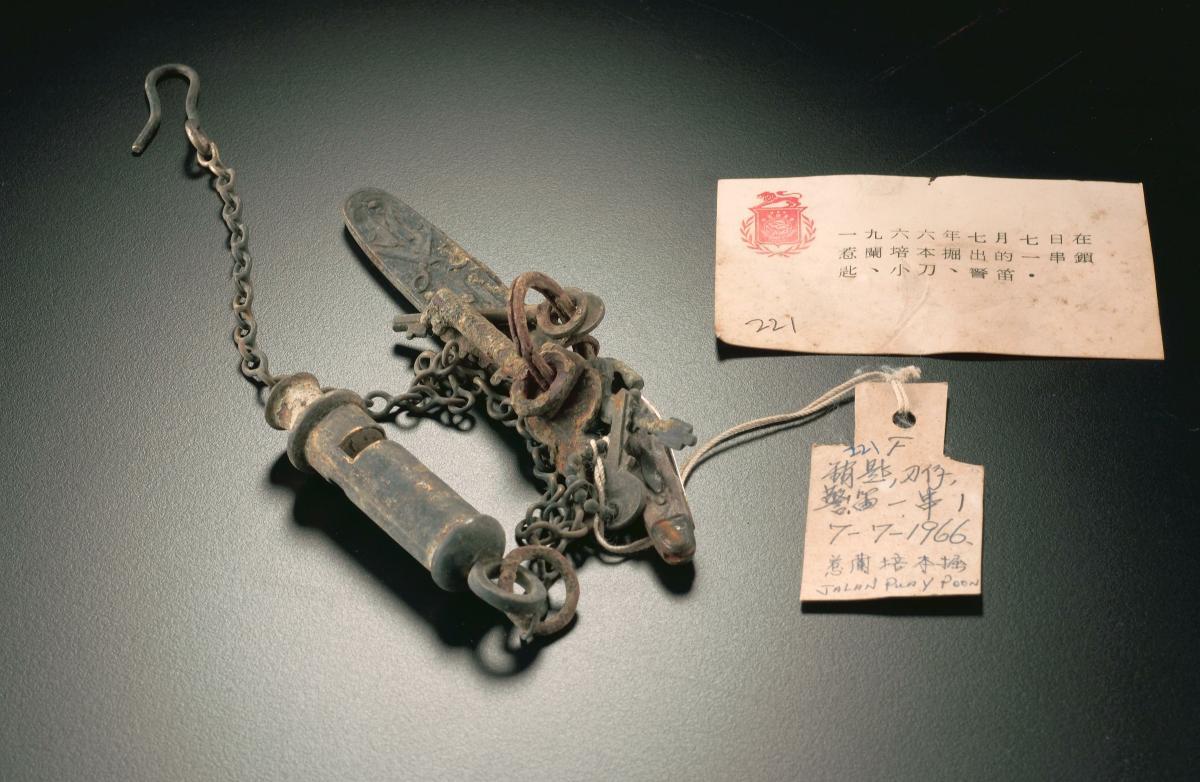 一九六六年七月七日在
惹蘭培本掘出的一串鎖
匙、小刀、警笛.
221
221 F
鎖匙,刀仔,
警笛一串1
7-7-1966
惹蘭培本掘
JALAN PUAY POON